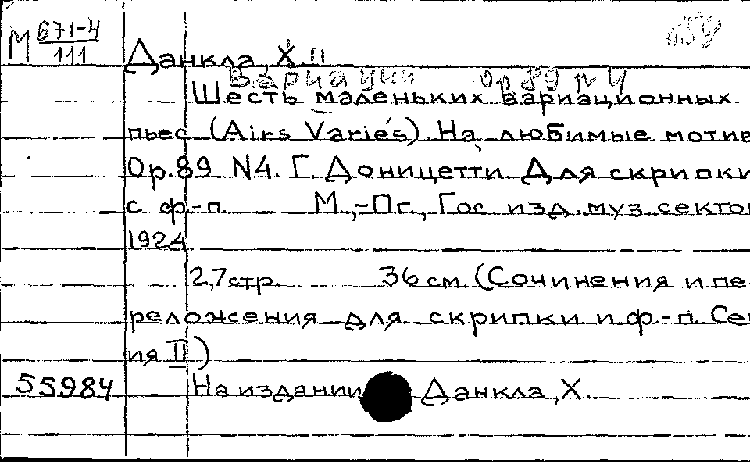 М 671-4
111
Данкла, Х. II
Вариации ор 89 N 4
Шесть маленьких вариационных
пьес (Airs Variés). На любимые мотив
Ор.89 N4. Г. Доницетти. Для скрипки
с ф.-п. М.,-Пг., Гос. изд. муз. сектор
1924
2,7 стр. 36 см. (Сочинения и пе-
реложения для скрипки и ф.-п. Се
ия II)
55984 На издании: Данкла, Х.